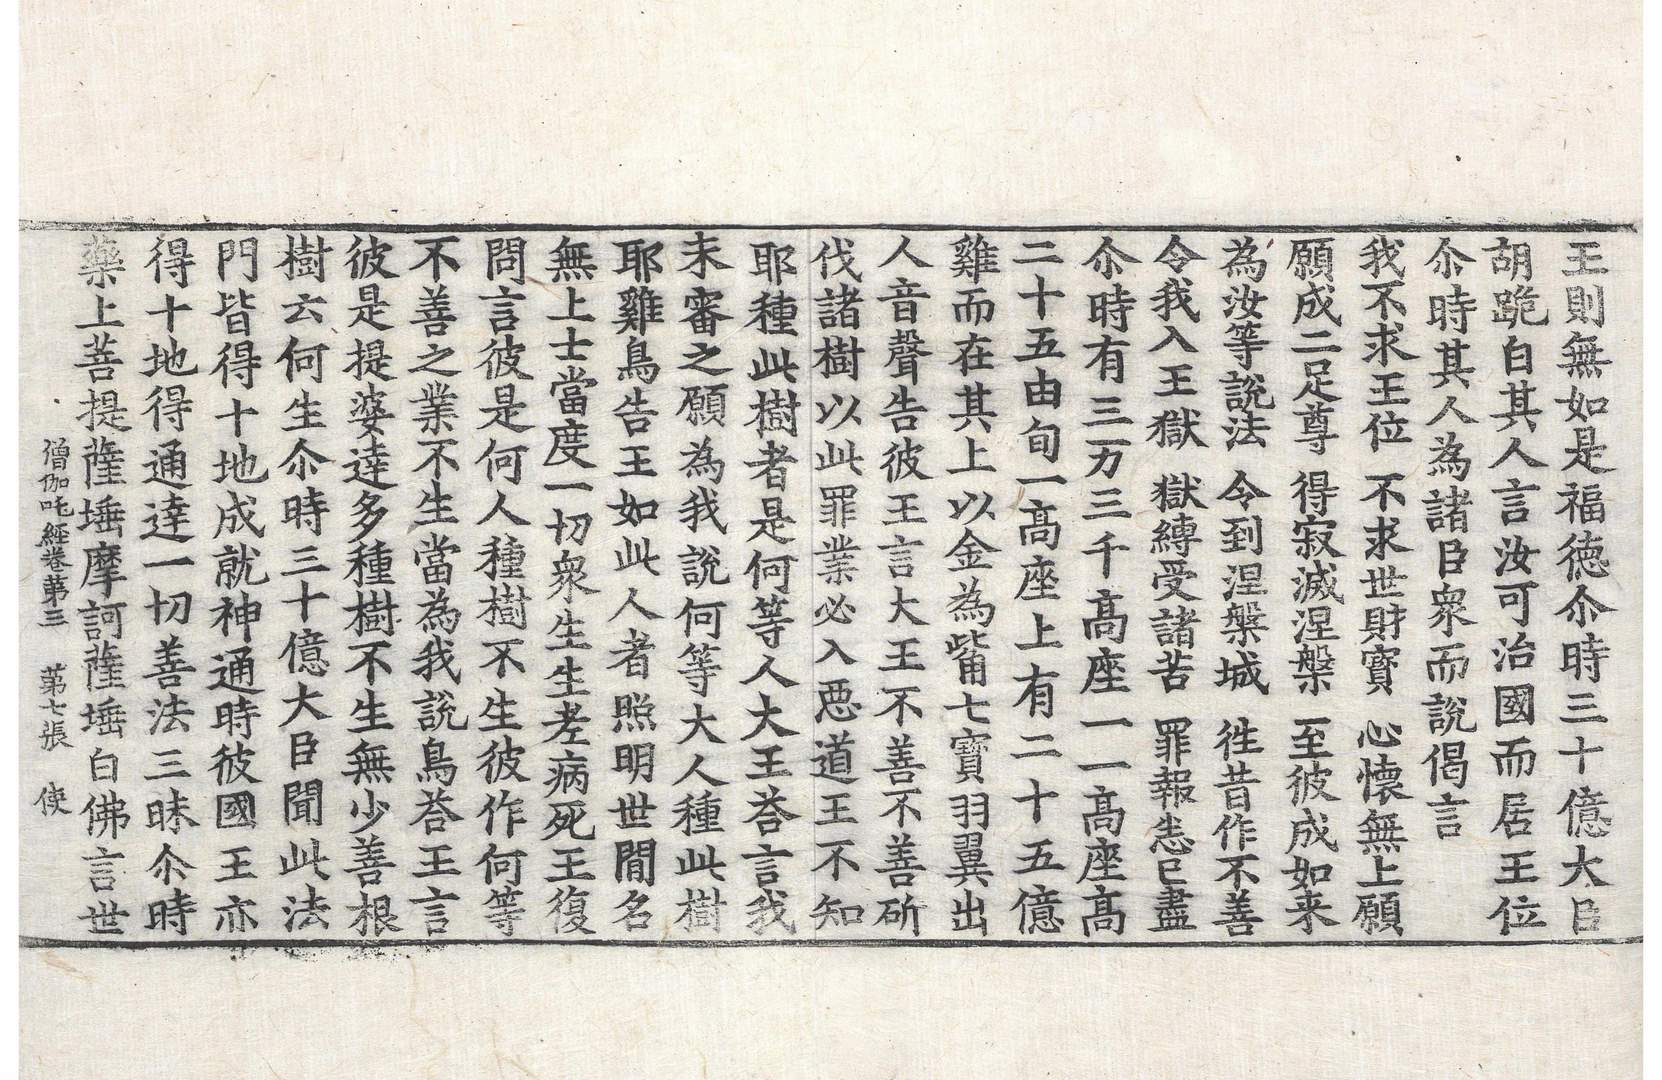 王則無如是福徳尒時三十億大臣
胡跪白其人言汝可治國而居王位
尒時其人為諸臣衆而說偈言
我不求王位 不求世財寶 心懷無上願
願成二足尊 得寂滅涅槃 至彼成如来
為汝等說法 令到涅槃城 徃昔作不善
令我入王獄 獄縛受諸苦 罪報悉已盡
尒時有三万三千髙座一一髙座髙
二十五由旬一髙座上有二十五億
雞而在其上以金為觜七寶羽翼出
人音聲告彼王言大王不善不善斫
伐諸樹以此罪業必入惡道王不知
耶種此樹者是何等人大王荅言我
未審之願為我說何等大人種此樹
耶雞鳥告王如此人者照明世閒名
無上士當度一切衆生生老病死王復
問言彼是何人種樹不生彼作何等
不善之業不生當為我說鳥荅王言
彼是提婆達多種樹不生無少善根
樹云何生尒時三十億大臣聞此法
門皆得十地成就神通時彼國王亦
得十地得通達一切善法三昧尒時
藥上菩提薩埵摩訶薩埵白佛言世
僧伽吒經卷第三 第七張 使